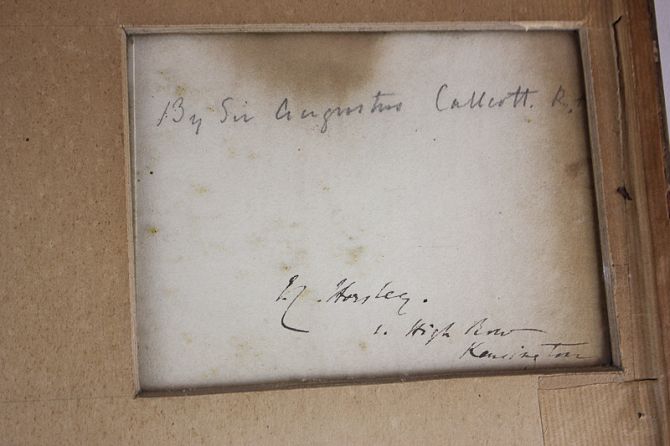 By Sir Augustus Callcott. R.
Horsley.
1. High Row
Kensington